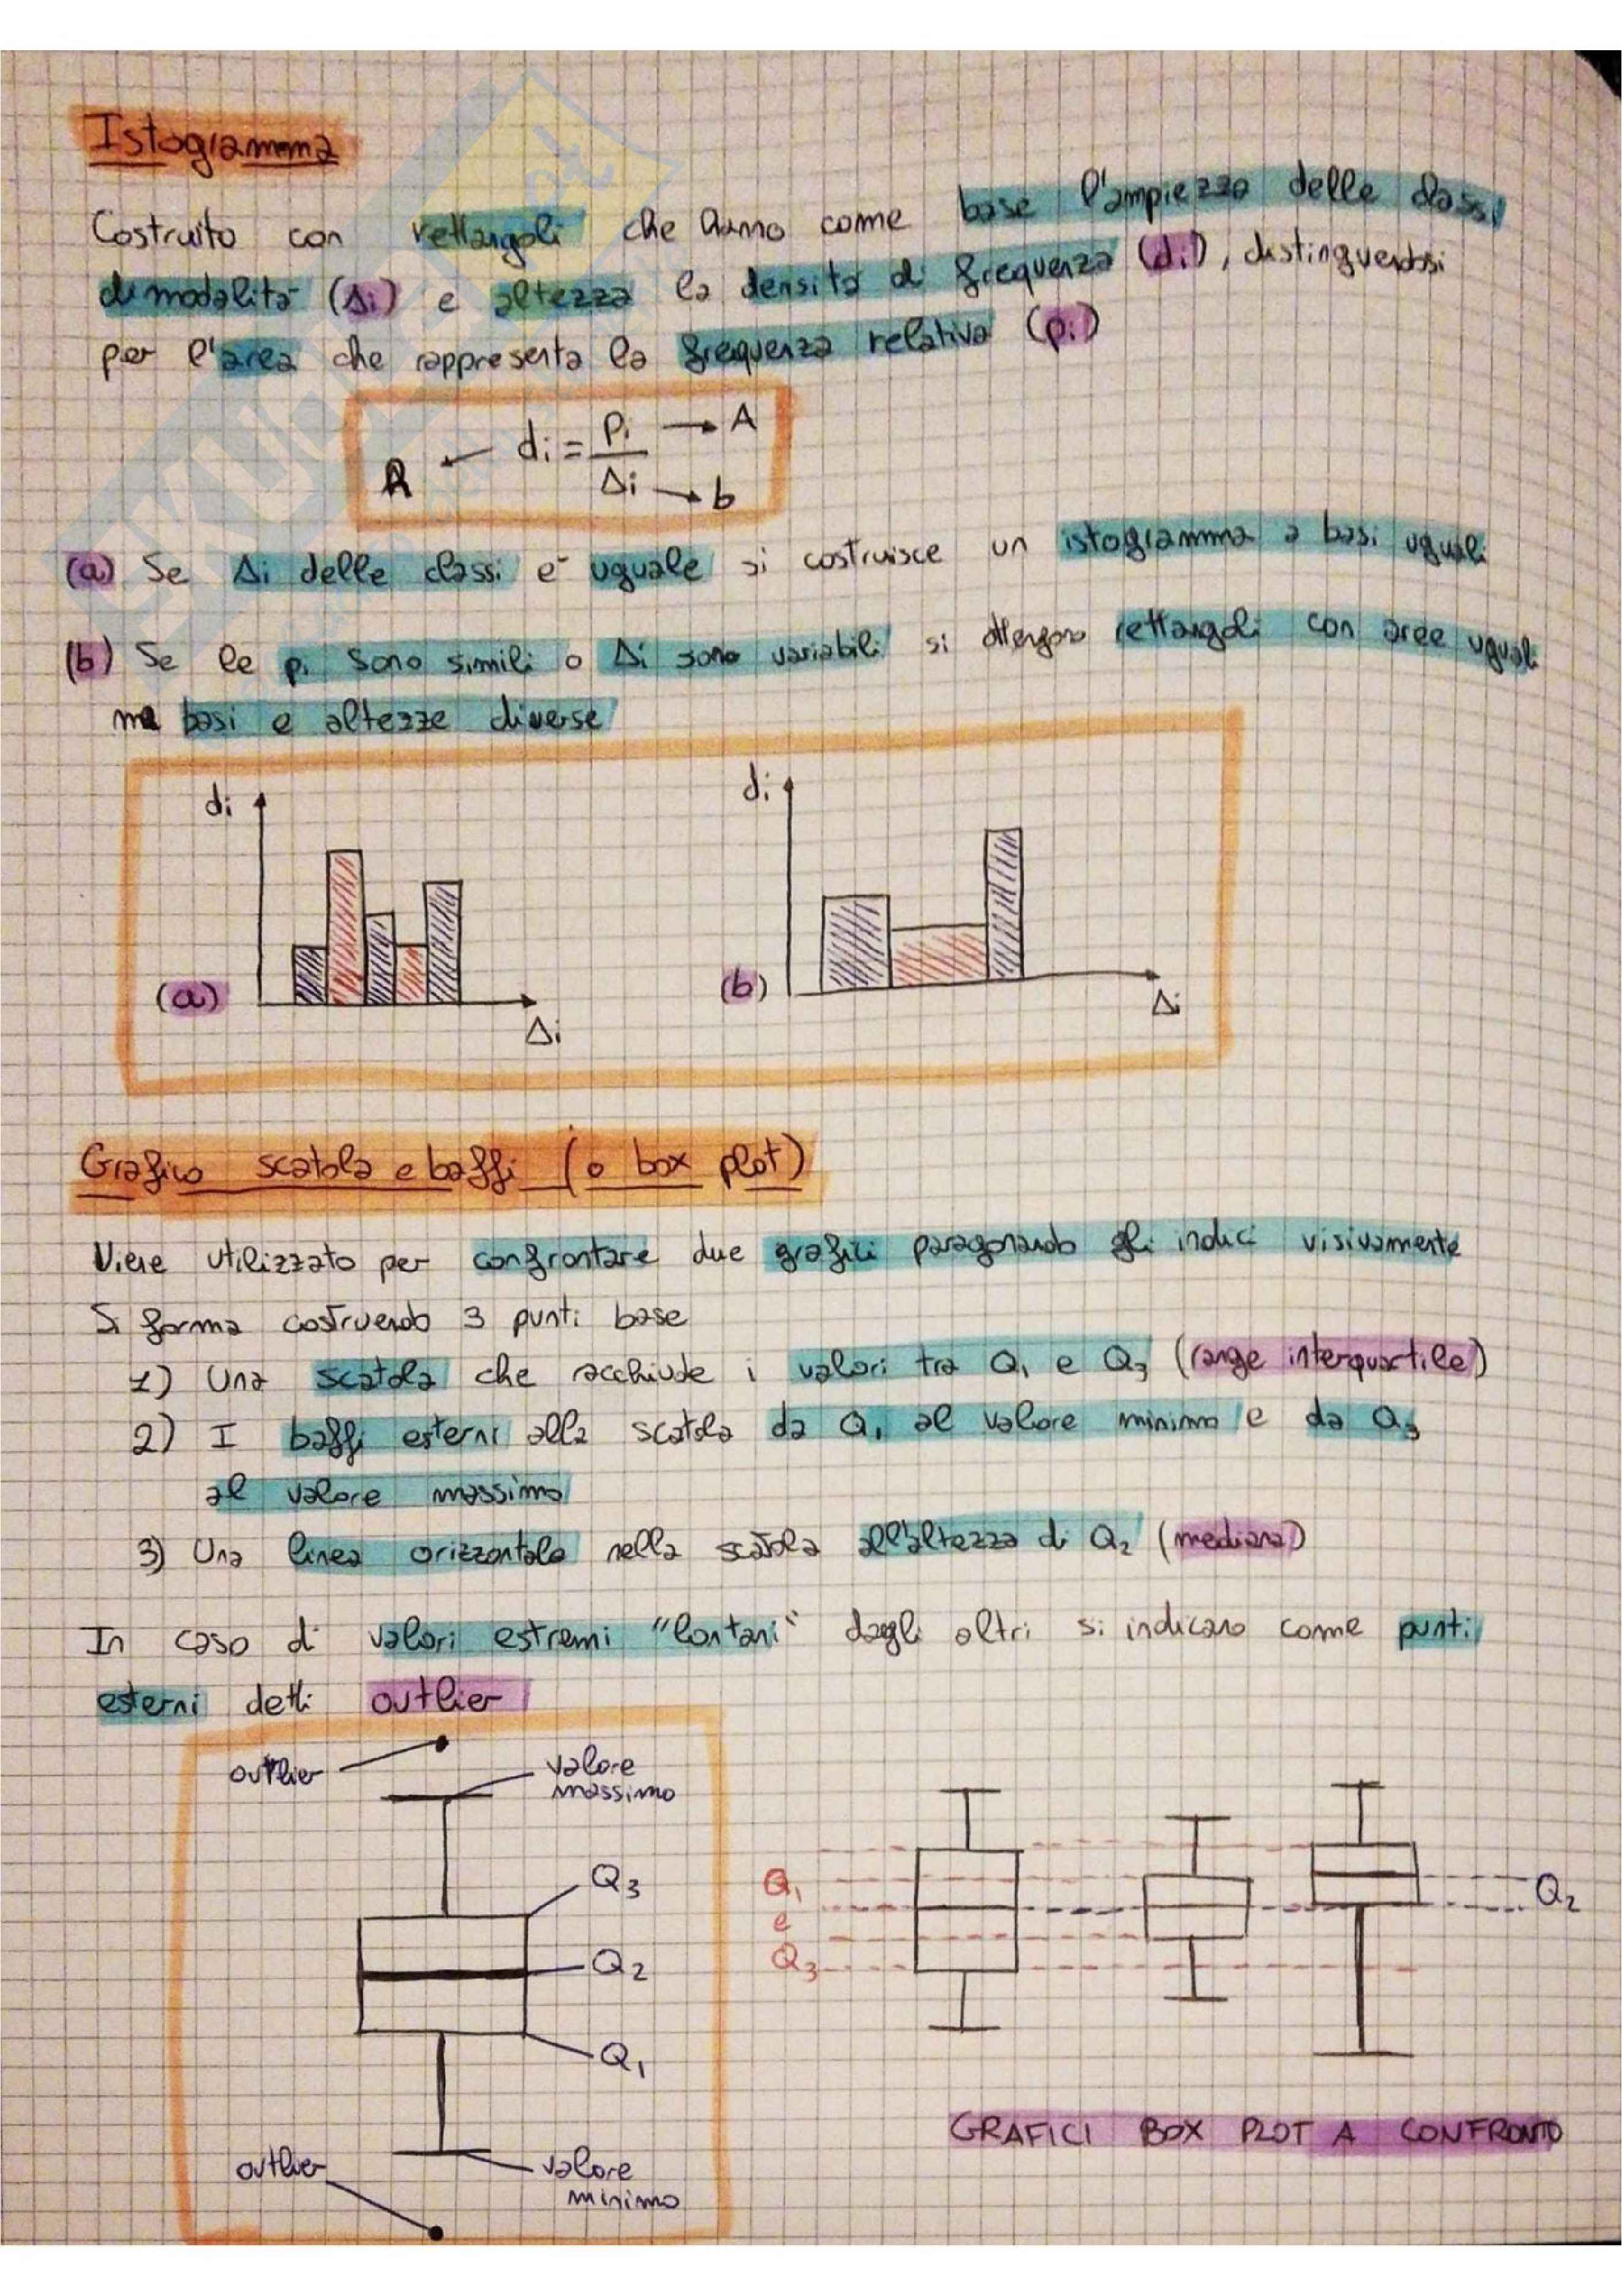 Istogramma
Costruito con rettangoli che hanno come base l'ampiezza delle classi
di modalità (Δi) e altezza la densità di frequenza (di), distinguendosi
per l'area che rappresenta la frequenza relativa (pi)
di = pi / Δi → A
h ← → b
(a) Se Δi delle classi è uguale si costruisce un istogramma a basi uguali
(b) Se le pi sono simili o Δi sono variabili si ottengono rettangoli con aree uguali
ma basi e altezze diverse
di
di
(a)
(b)
Δi
Δi
Grafico scatola e baffi (o box plot)
Viene utilizzato per confrontare due grafici paragonando gli indici visivamente
Si forma costruendo 3 punti base
1) Una scatola che racchiude i valori tra Q1 e Q3 (range interquartile)
2) I baffi esterni alla scatola da Q1 al valore minimo e da Q3
al valore massimo
3) Una linea orizzontale nella scatola all'altezza di Q2 (mediana)
In caso di valori estremi "lontani" dagli altri si indicano come punti
esterni detti outlier
outlier
valore
massimo
Q3
Q2
Q1
outlier
valore
minimo
Q1
e
Q3
Q2
GRAFICI BOX PLOT A CONFRONTO